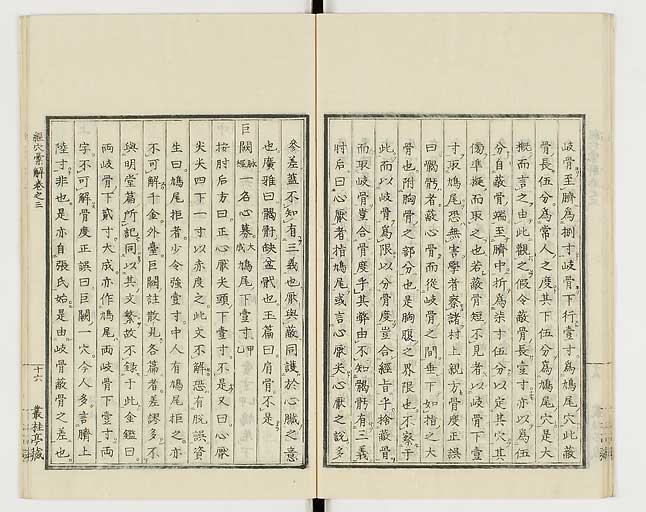 岐骨至臍爲捌寸岐骨下行壹寸爲鳩尾穴此蔽
骨長伍分爲常人之度其下伍分爲鳩尾穴是大
槪而言之由此觀之假令蔽骨長壹寸亦以爲伍
分自蔽骨端至臍中折爲柒寸伍分以定其穴其
準擬而取之也若蔽骨短不見者以岐骨下壹
寸取鳩尾恐無害學者察諸村上親方骨度正誤
曰䯏骬者蔽心骨而從岐骨之間垂下如指之大
骨也附胸骨之部分也是胸腹之界限也不察于
此而以岐骨爲限以分骨度豈合經旨乎捨蔽骨
而取岐骨豈合骨度乎其弊由不知䯏骬有三義
肘后曰心厭者指鳩尾或言心厭夫心厭之說多
參差蓋不知有三義也厭與蔽同護於心臟之意
也廣雅曰䯏骬缺盆骩也玉篇曰肩骨不是
巨闕 一名心募 鳩尾下壹寸
按肘后方曰正心厭尖頭下壹寸不是又曰心厭
尖尖四下一寸以赤度之此文不解恐有脫誤資
生曰鳩尾拒者少令強壹寸中人有鳩尾拒之亦
不可解千金外臺巨闕註散見各篇者差謬多不
與明堂篇所記同以其文繁故不錄于此金鑑曰
兩岐骨下貳寸大成亦作鳩尾兩岐骨下壹寸兩
字不可解骨度正誤曰巨闕一穴今人多言臍上
陸寸非也是亦自張氏始是由岐骨蔽骨之差也
經穴彙解卷之三
十六
叢桂亭藏